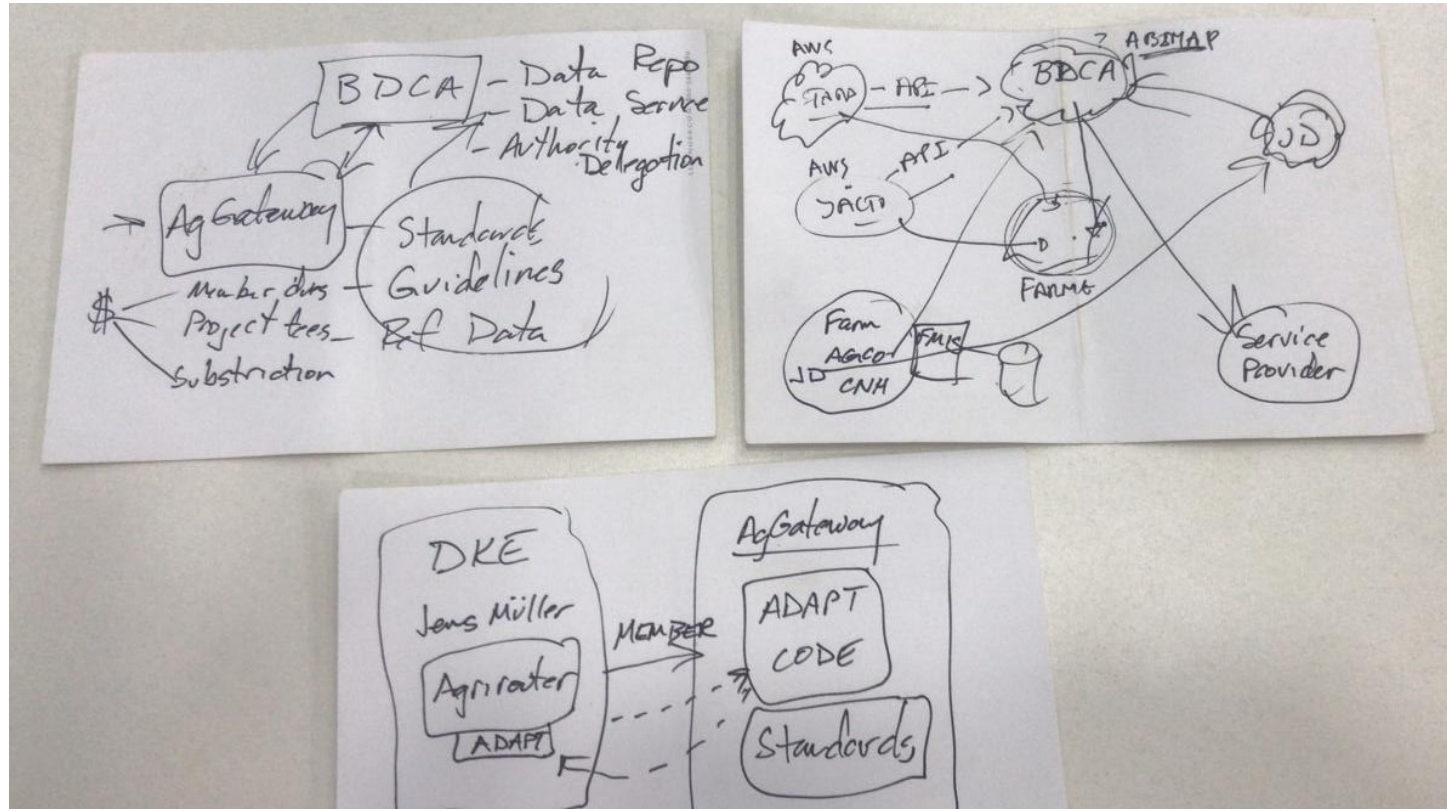 BDCA
- Data Repo
- Data Service
- Authority
Delegation
AgGateway
Standards
Guidelines
Ref Data
$
Member dues -
Project fees -
Substriction
AWS
API
BDCA
? ABIMAP
JD
AWS
API
JACTO
FARMS
Farm
AGCO
JD
CNH
FMIS
Service
Provider
DKE
Jens Müller
Agrirouter
ADAPT
MEMBER
AgGateway
ADAPT
CODE
Standards